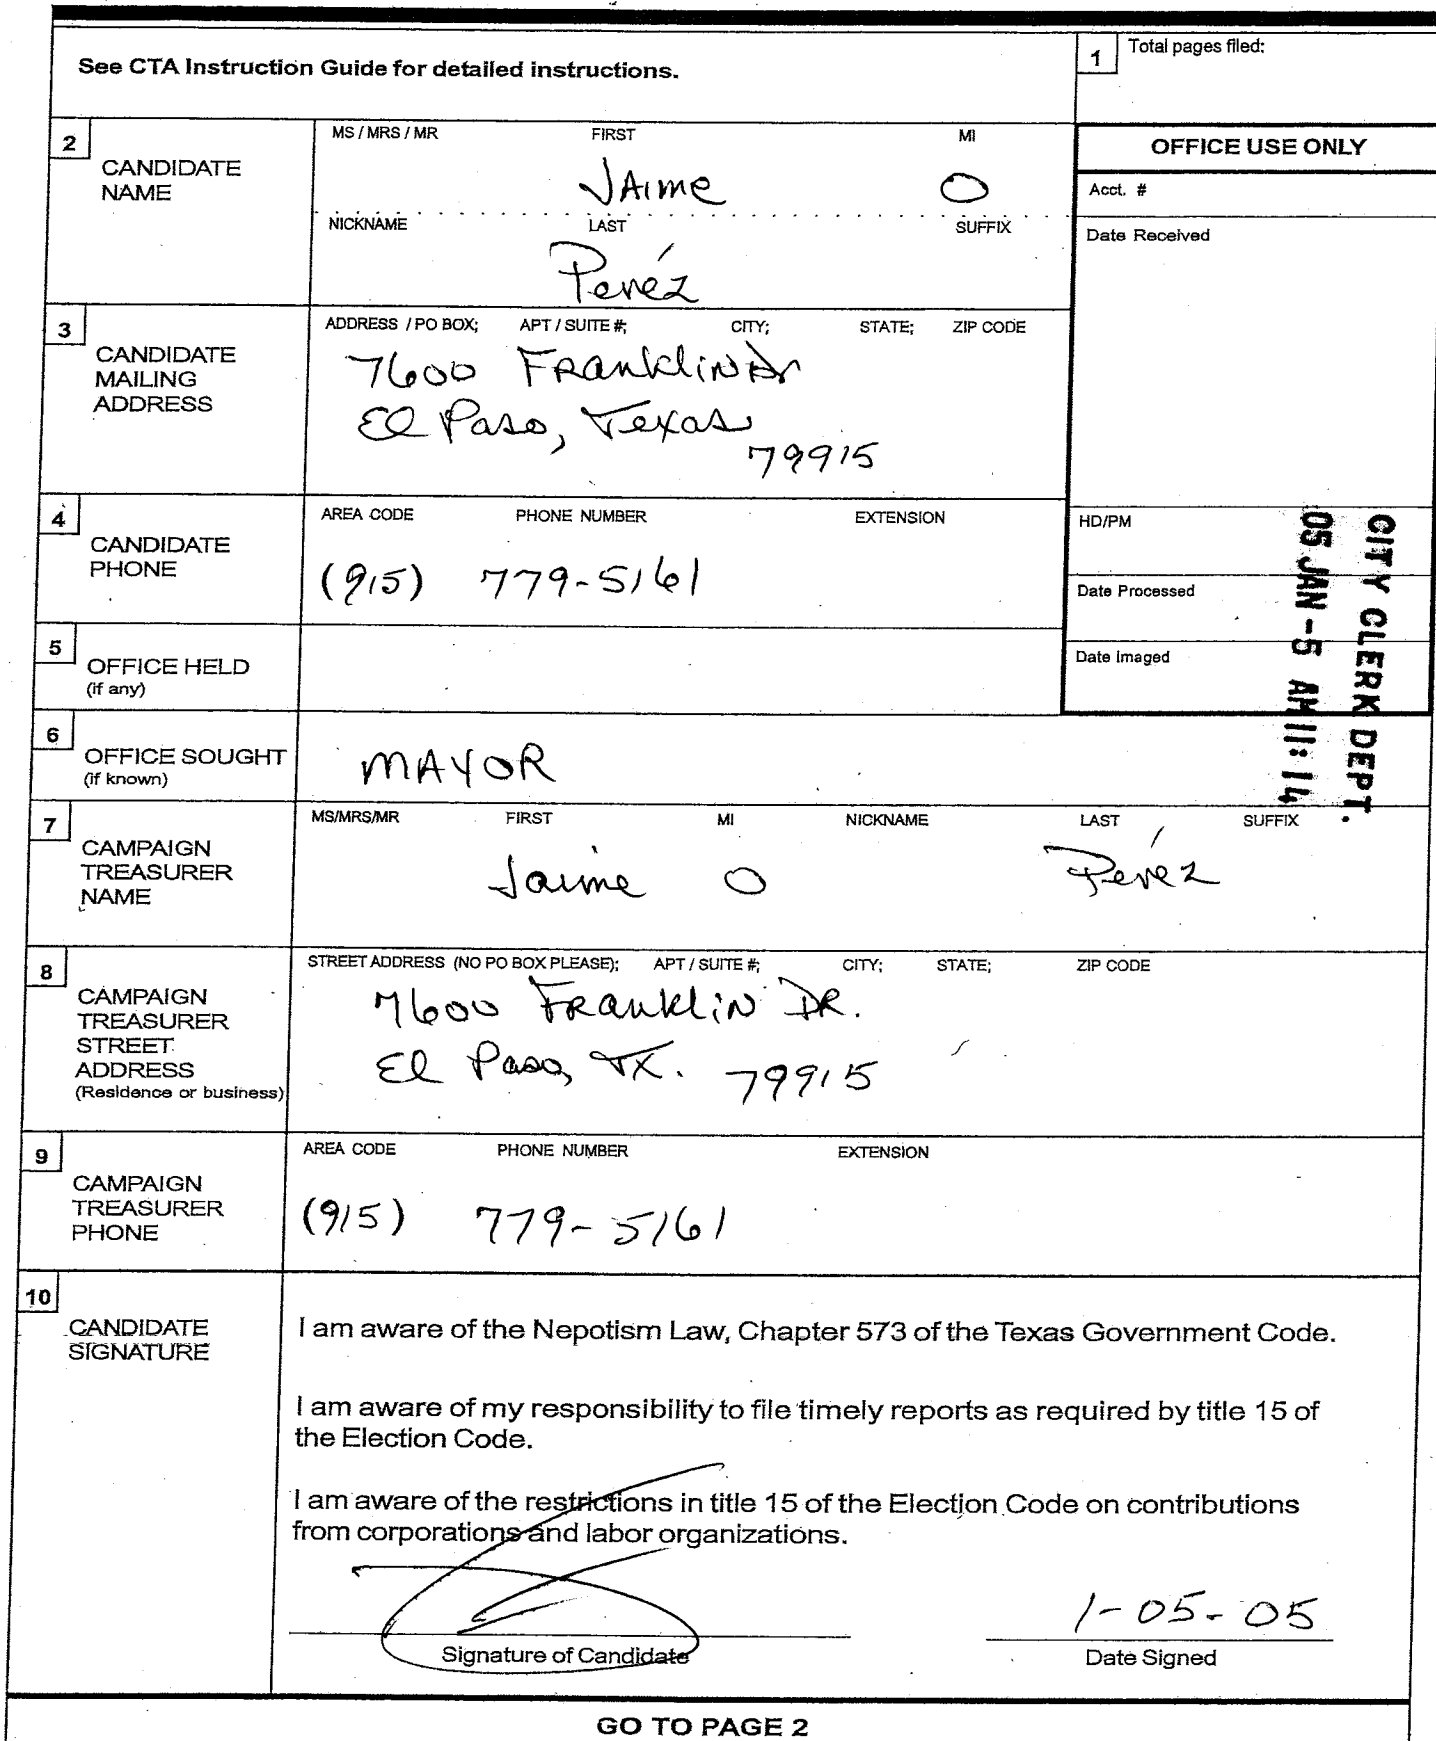 See CTA Instruction Guide for detailed instructions.
1 Total pages filed:
2 CANDIDATE NAME
MS / MRS / MR FIRST MI
JAIME O
NICKNAME LAST SUFFIX
Peréz
OFFICE USE ONLY
Acct. #
Date Received
3 CANDIDATE MAILING ADDRESS
ADDRESS / PO BOX; APT / SUITE #; CITY; STATE; ZIP CODE
7600 Franklin Dr
El Paso, Texas
79915
4 CANDIDATE PHONE
AREA CODE PHONE NUMBER EXTENSION
(915) 779-5161
HD/PM
Date Processed
Date Imaged
CITY CLERK DEPT.
05 JAN -5 AM 11: 14
5 OFFICE HELD
(if any)
6 OFFICE SOUGHT
(if known)
MAYOR
7 CAMPAIGN TREASURER NAME
MS/MRS/MR FIRST MI NICKNAME LAST SUFFIX
Jaime O Peréz
8 CAMPAIGN TREASURER STREET ADDRESS
(Residence or business)
STREET ADDRESS (NO PO BOX PLEASE); APT / SUITE #; CITY; STATE; ZIP CODE
7600 Franklin DR.
El Paso, TX. 79915
9 CAMPAIGN TREASURER PHONE
AREA CODE PHONE NUMBER EXTENSION
(915) 779-5161
10 CANDIDATE SIGNATURE
I am aware of the Nepotism Law, Chapter 573 of the Texas Government Code.
I am aware of my responsibility to file timely reports as required by title 15 of
the Election Code.
I am aware of the restrictions in title 15 of the Election Code on contributions
from corporations and labor organizations.
1-05-05
Signature of Candidate Date Signed
GO TO PAGE 2